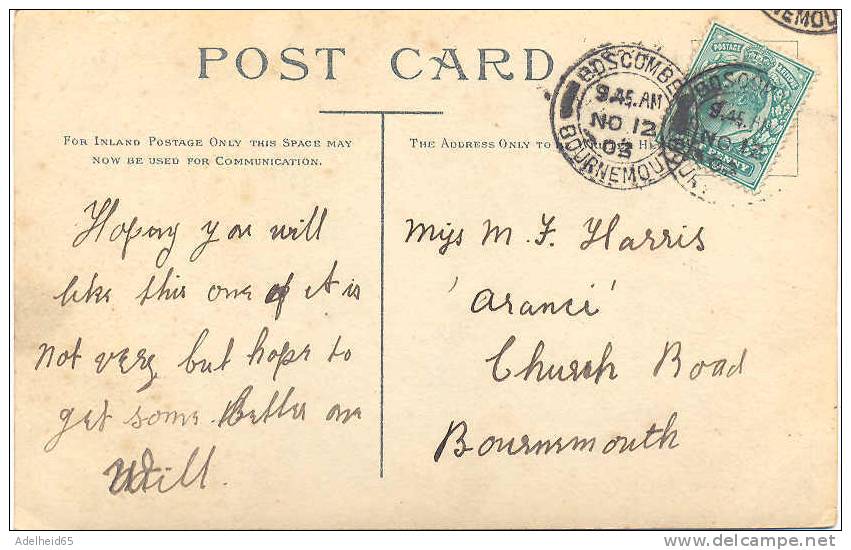 POST CARD
FOR INLAND POSTAGE ONLY THIS SPACE MAY
NOW BE USED FOR COMMUNICATION.
THE ADDRESS ONLY TO
Hoping you will
like this one if it is
not very but hope to
get some better one
Will.
Miss M. F. Harris
'Aranci'
Church Road
Bournemouth
BOSCOMBE
9.45.AM
NO 12
BOURNEMOU
BOSCOM
9.45.A
NO 12
POSTAGE
PENNY
NEMOU
Adelheid65
delcampe.net